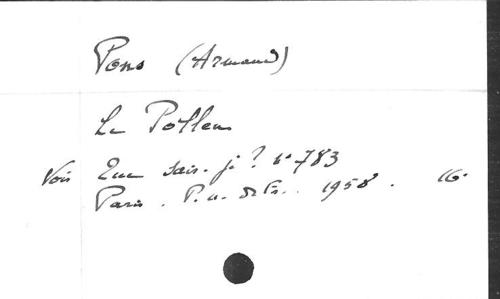 Pons (Armand)
Le Pollen
Voir Que sais-je? n° 783
Paris. P.u. de Fr.. 1958. 16°